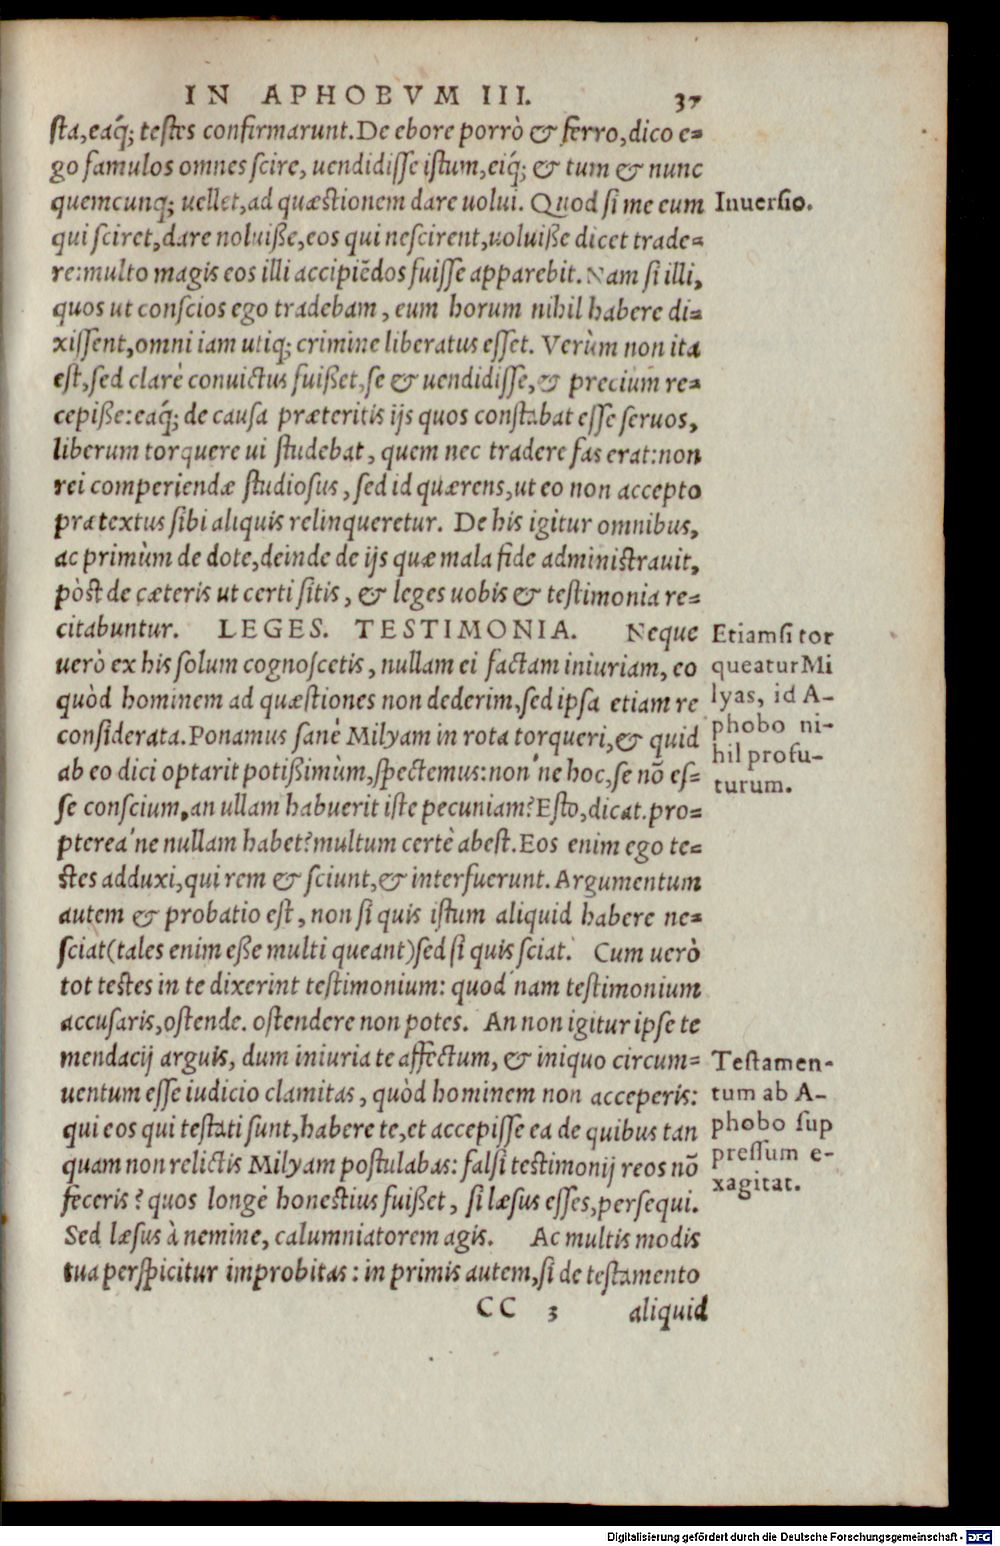 IN APHOBVM III. 37
sta, eaq́; testes confirmarunt. De ebore porrò & ferro, dico e=
go famulos omnes scire, uendidisse istum, eiq́; & tum & nunc
quemcunq; uellet, ad quæstionem dare uolui. Quod si me eum
Inuersio.
qui sciret, dare noluiße, eos qui nescirent, uoluiße dicet trade=
re: multo magis eos illi accipiẽdos fuisse apparebit. Nam si illi,
quos ut conscios ego tradebam, eum horum nihil habere di=
xissent, omni iam utiq; crimine liberatus esset. Verùm non ita
est, sed clarè conuictus fuißet, se & uendidisse, & precium re=
cepiße: eaq́; de causa præteritis ijs quos constabat esse seruos,
liberum torquere ui studebat, quem nec tradere fas erat: non
rei comperiendæ studiosus, sed id quærens, ut eo non accepto
prætextus sibi aliquis relinqueretur. De his igitur omnibus,
ac primùm de dote, deinde de ijs quæ mala fide administrauit,
pòst de cæteris ut certi sitis, & leges uobis & testimonia re=
citabuntur. LEGES. TESTIMONIA. Neque
uerò ex his solum cognoscetis, nullam ei factam iniuriam, eo
quòd hominem ad quæstiones non dederim, sed ipsa etiam re
considerata. Ponamus sanè Milyam in rota torqueri, & quid
ab eo dici optarit potißimùm, spectemus: non'ne hoc, se nõ es=
se conscium, an ullam habuerit iste pecuniam? Esto, dicat. pro=
Etiamsi tor
queatur Mi
lyas, id A-
phobo ni-
hil profu-
turum.
pterea'ne nullam habet? multum certè abest. Eos enim ego te=
stes adduxi, qui rem & sciunt, & interfuerunt. Argumentum
autem & probatio est, non si quis istum aliquid habere ne=
sciat (tales enim eße multi queant) sed si quis sciat. Cum uerò
tot testes in te dixerint testimonium: quod'nam testimonium
accusaris, ostende. ostendere non potes. An non igitur ipse te
mendacij arguis, dum iniuria te affectum, & iniquo circum=
uentum esse iudicio clamitas, quòd hominem non acceperis:
qui eos qui testati sunt, habere te, et accepisse ea de quibus tan
quam non relictis Milyam postulabas: falsi testimonij reos nõ
feceris? quos longè honestius fuißet, si læsus esses, persequi.
Testamen-
tum ab A-
phobo sup
pressum e-
xagitat.
Sed læsus à nemine, calumniatorem agis. Ac multis modis
tua perspicitur improbitas: in primis autem, si de testamento
CC 3 aliquid
Digitalisierung gefördert durch die Deutsche Forschungsgemeinschaft - DFG